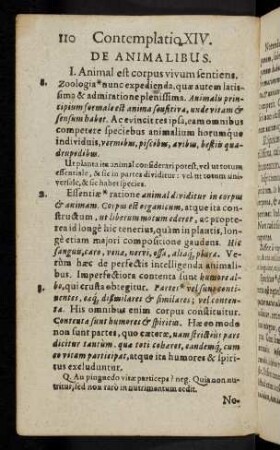 110 Contemplatio XIV.
DE ANIMALIBUS.
I. Animal est corpus vivum sentiens.
Zoologia * nunc expedienda, quæ autem latis-
sima & admiratione plenissima. Animaliũ prin-
cipium formale est anima sensitiva, unde vitam &
sensum habet. Ac evincit res ipsa, eam omnibus
competere speciebus animalium horumque
individuis, vermibus, piscibus, avibus, bestiis qua-
drupedibus.
Ut planta ita animal considerari potest, vel ut totum
essentiale, & sic in partes dividitur: vel ut totum uni-
versale, & sic habet species.
Essentiæ * ratione animal dividitur in corpus
& animam. Corpus est organicum, atque ita con-
structum, ut liberum motum ederet, ac propte-
rea id longè hîc tenerius, quàm in plantis, lon-
gè etiam majori compositione gaudens. Hîc
sanguis, caro, vena, nervi, ossa, aliaq́, plura. Ve-
rùm hæc de perfectis intelligenda animali-
bus. Imperfectiora contenta sunt humore al-
bo, qui crusta obtegitur. Partes * vel sunt conti-
nentes, eæq́, dissimilares & similares; vel conten-
ta. His omnibus enim corpus constituitur.
Contenta sunt humores & spiritus. Hæ eo modo
non sunt partes, quo cæteræ, nam strictiùs pars
dicitur tantùm, quæ toti cohæret, eandemq́, cum
eo vitam participat, utque ita humores & spiri-
tus excluduntur.
Q. An pinguedo vitæ particeps? neg. Quia non nu-
tritur, sed non rarò in nutrimentum cedit.
No-